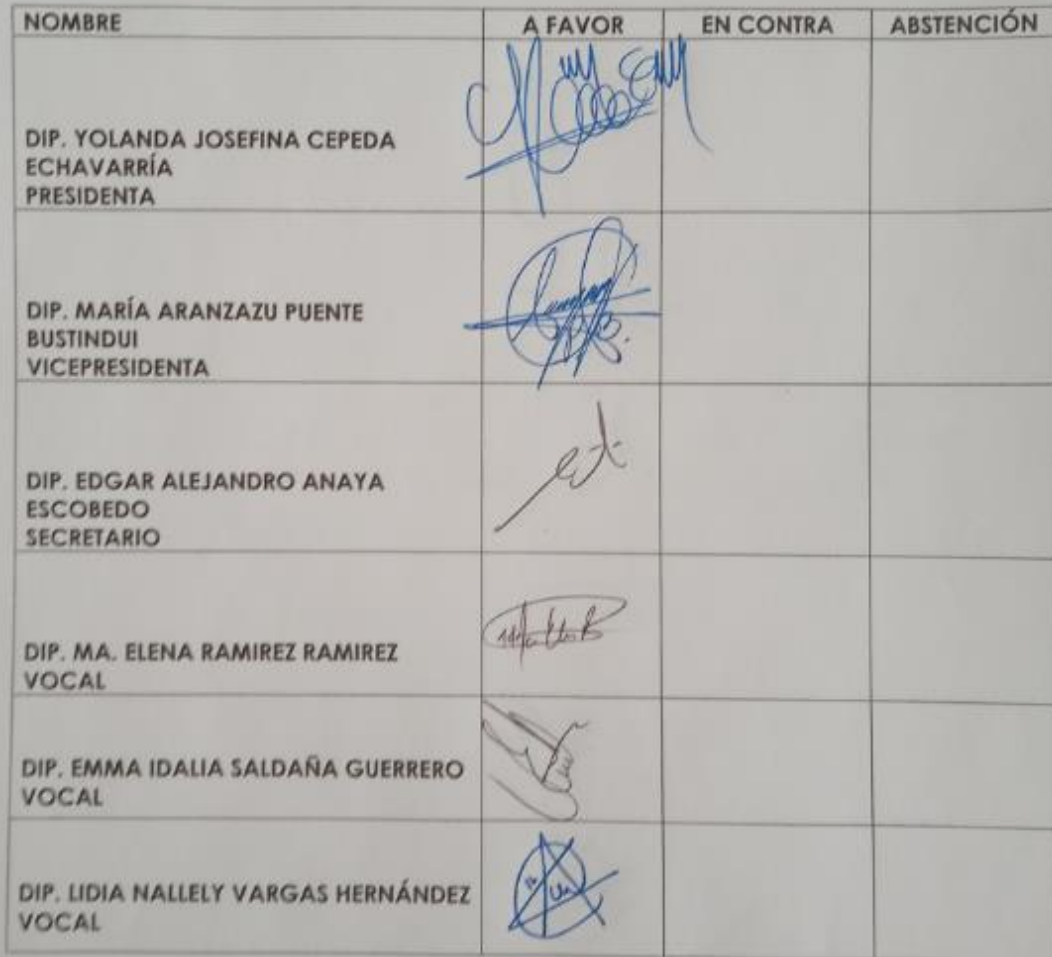 NOMBRE A FAVOR EN CONTRA ABSTENCIÓN
DIP. YOLANDA JOSEFINA CEPEDA
ECHAVARRÍA
PRESIDENTA
DIP. MARÍA ARANZAZU PUENTE
BUSTINDUI
VICEPRESIDENTA
DIP. EDGAR ALEJANDRO ANAYA
ESCOBEDO
SECRETARIO
DIP. MA. ELENA RAMIREZ RAMIREZ
VOCAL
DIP. EMMA IDALIA SALDAÑA GUERRERO
VOCAL
DIP. LIDIA NALLELY VARGAS HERNÁNDEZ
VOCAL